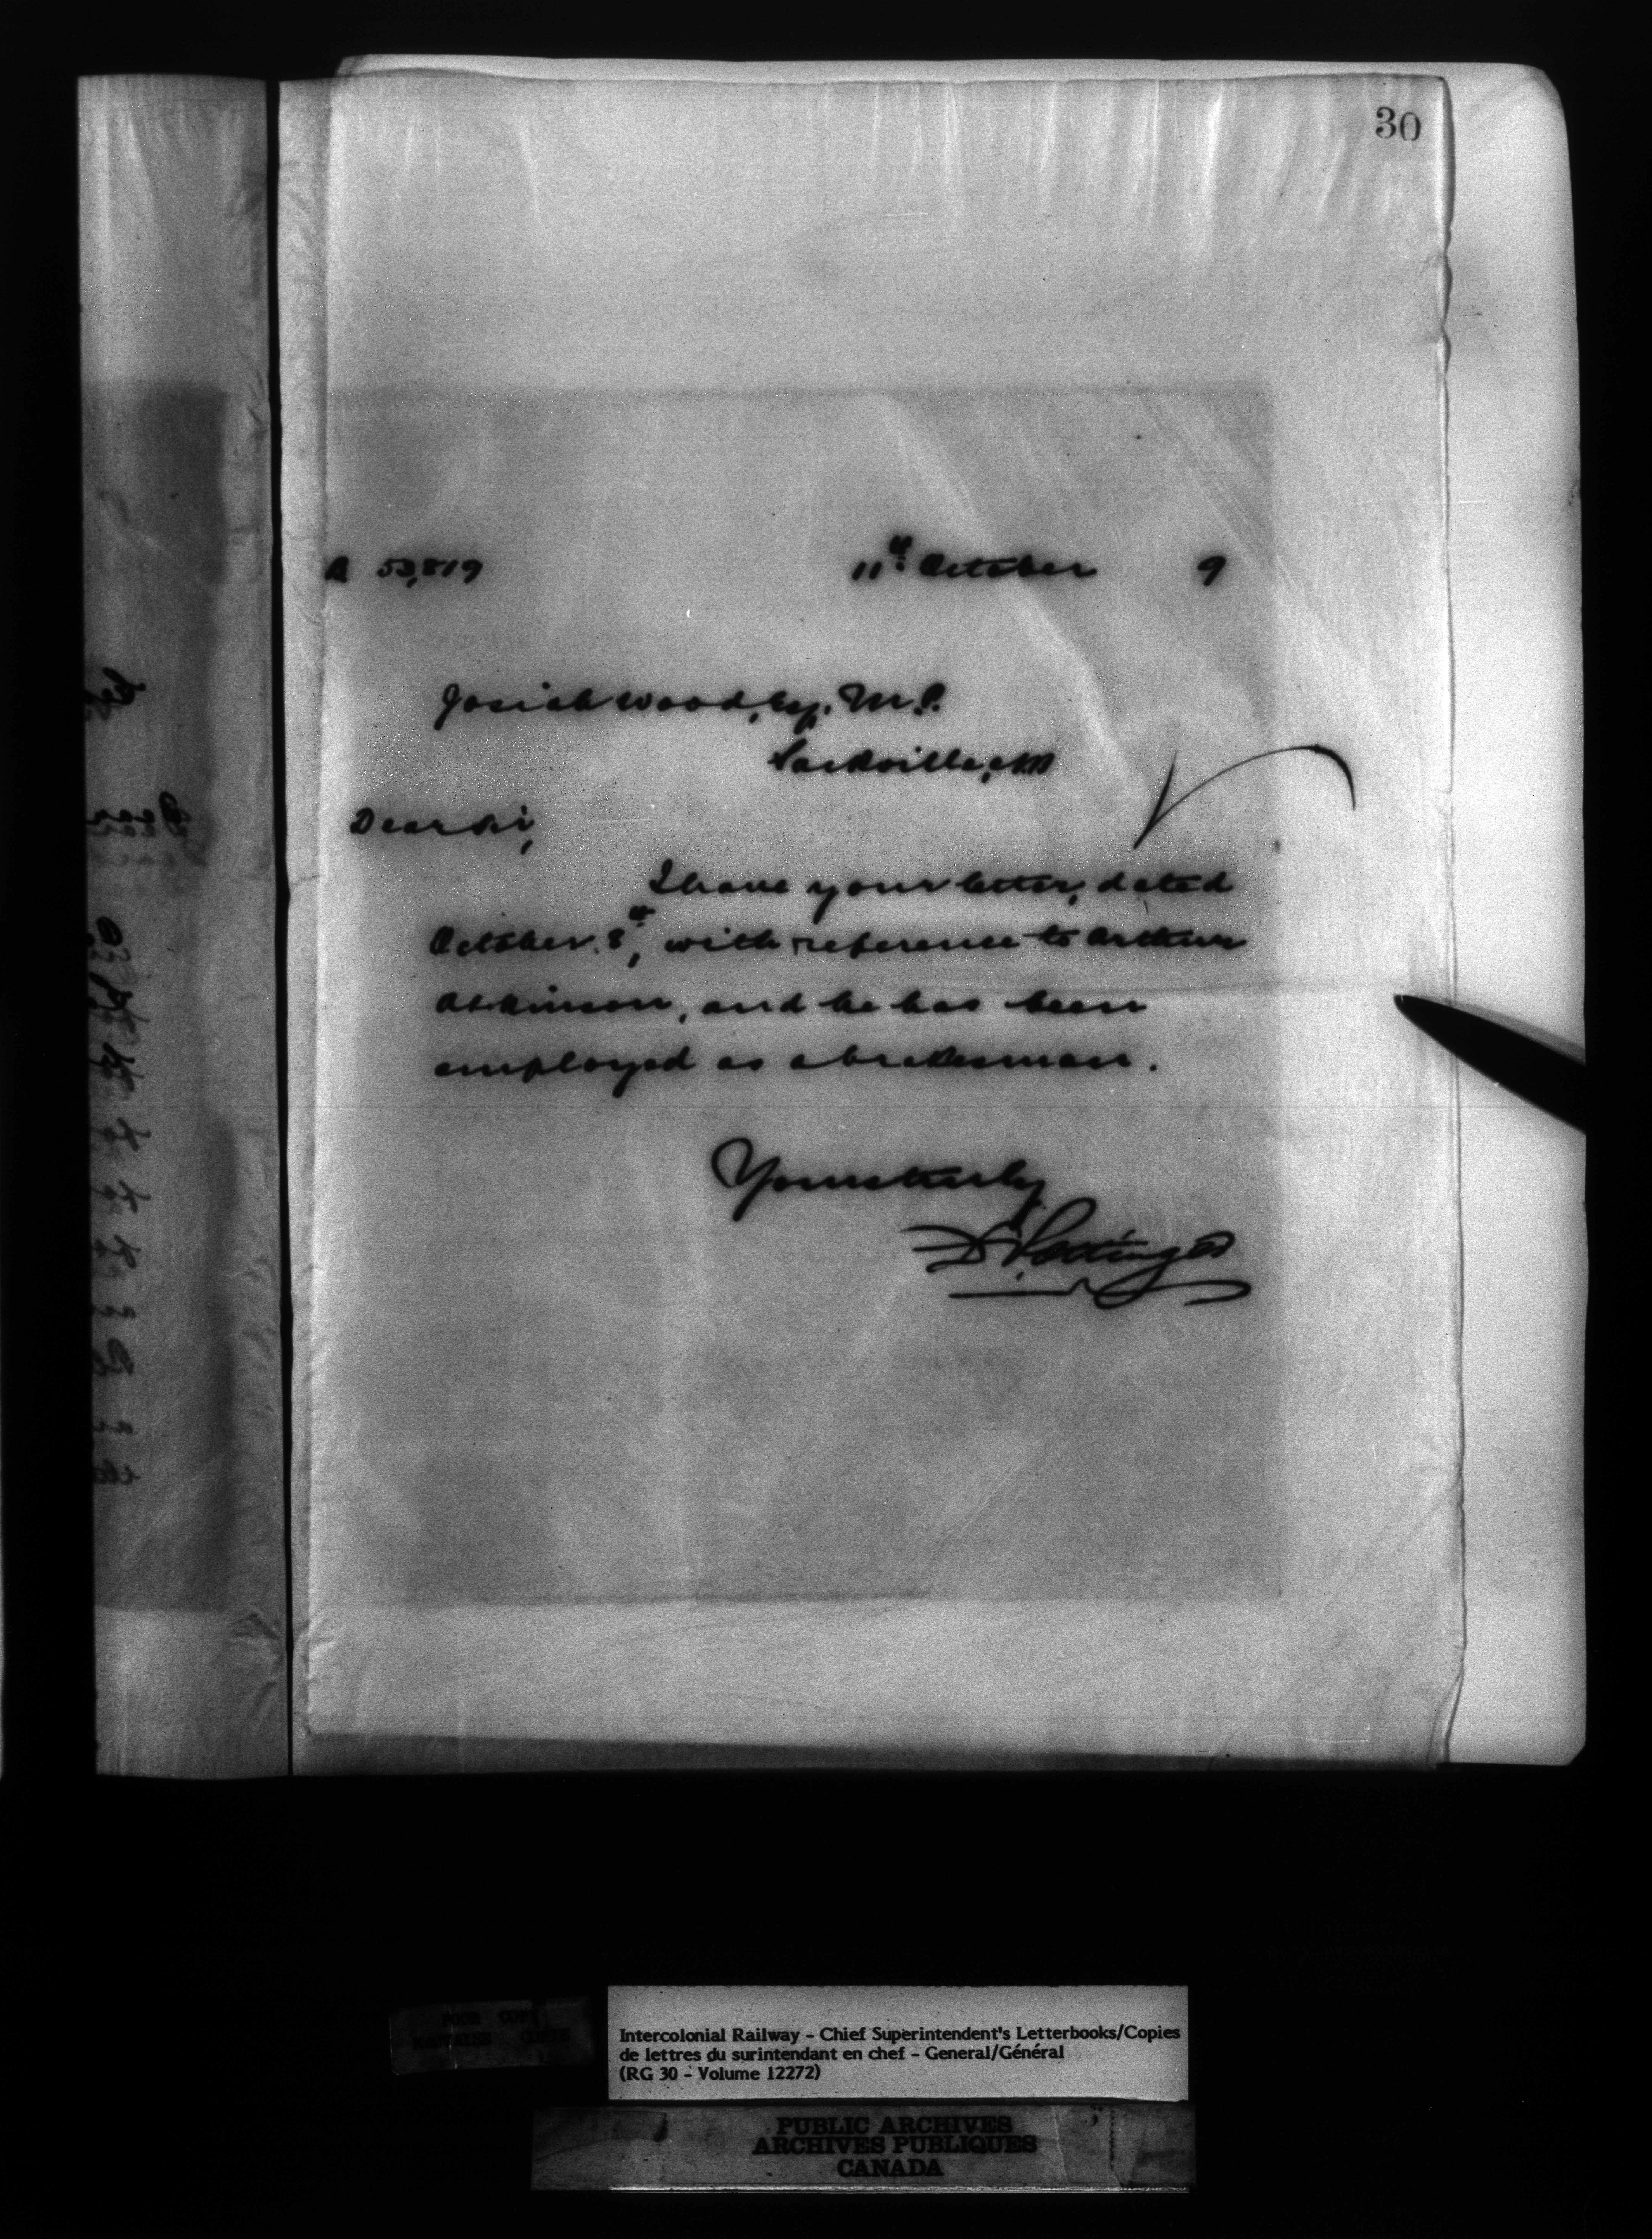 30
R 53,819 11th October 9
Josiah Wood, Esq. M.P.
Sackville, NB
Dear Sir,
I have your letter, dated
October 8th, with reference to Arthur
Atkinson, and he has been
employed as a brakesman.
Yours truly
D. Pottinger
POOR COPY
Intercolonial Railway - Chief Superintendent's Letterbooks/Copies
de lettres du surintendant en chef - General/Général
(RG 30 - Volume 12272)
PUBLIC ARCHIVES
ARCHIVES PUBLIQUES
CANADA